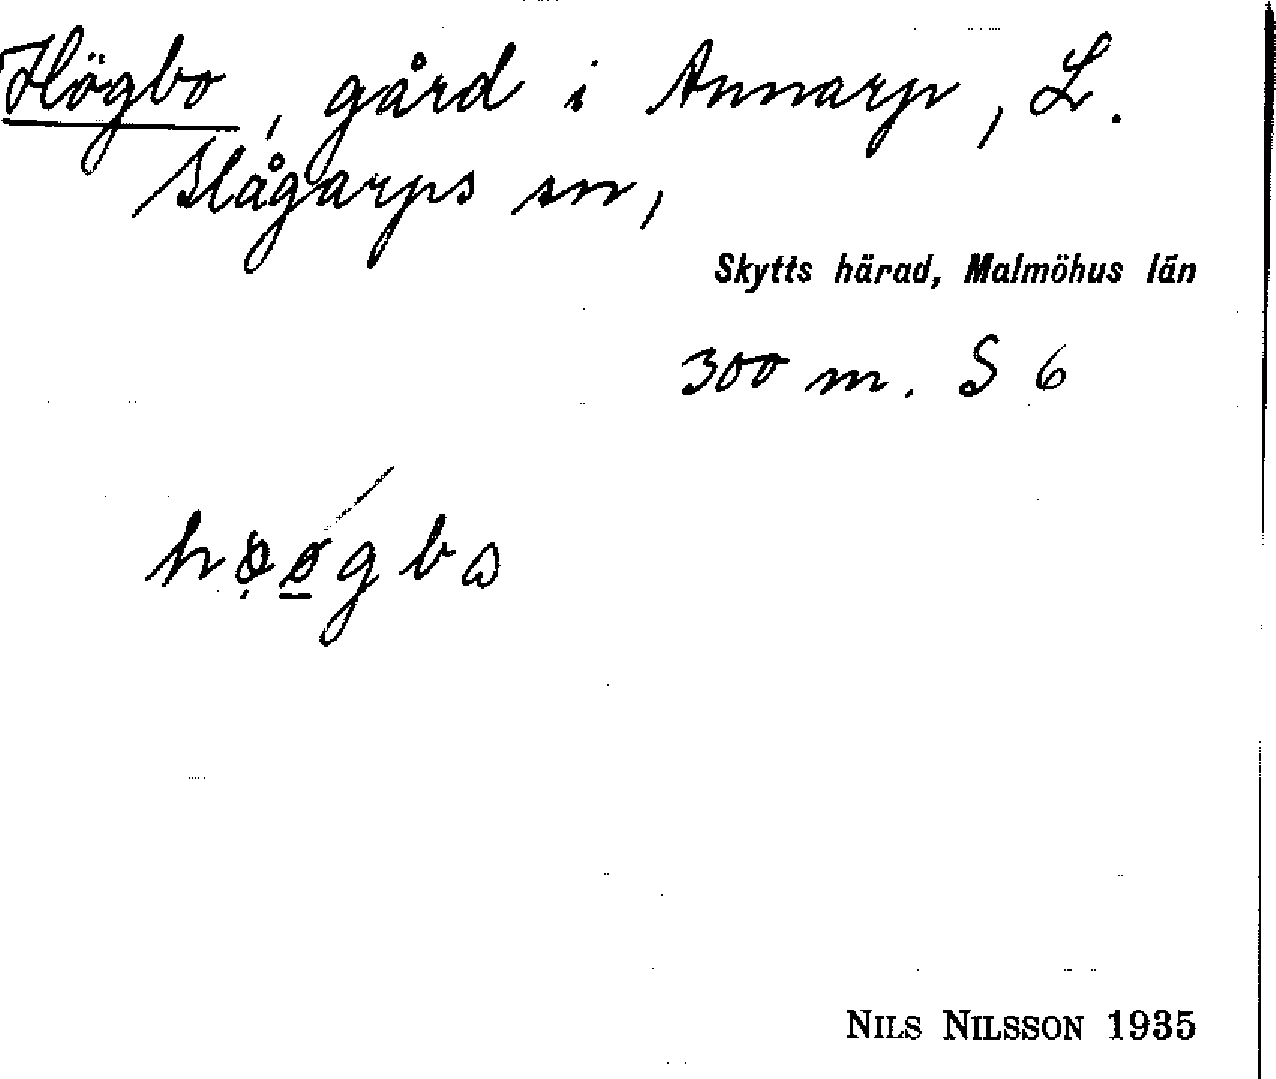 Högbo, gård i Annarp, L.
Slågarps sn,
Skytts härad, Malmöhus län
300 m. S 6
hø̣ǿ̲gbω
NILS NILSSON 1935